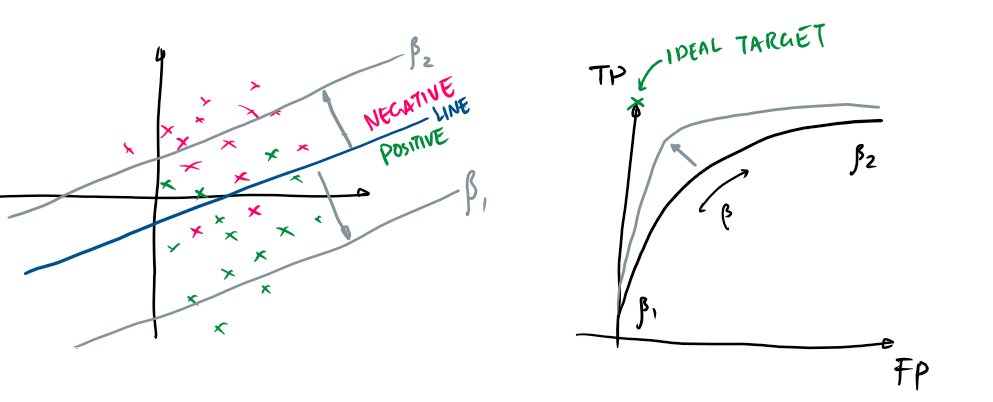 β2
NEGATIVE
LINE
POSITIVE
β1
IDEAL TARGET
TP
β2
β
β1
FP